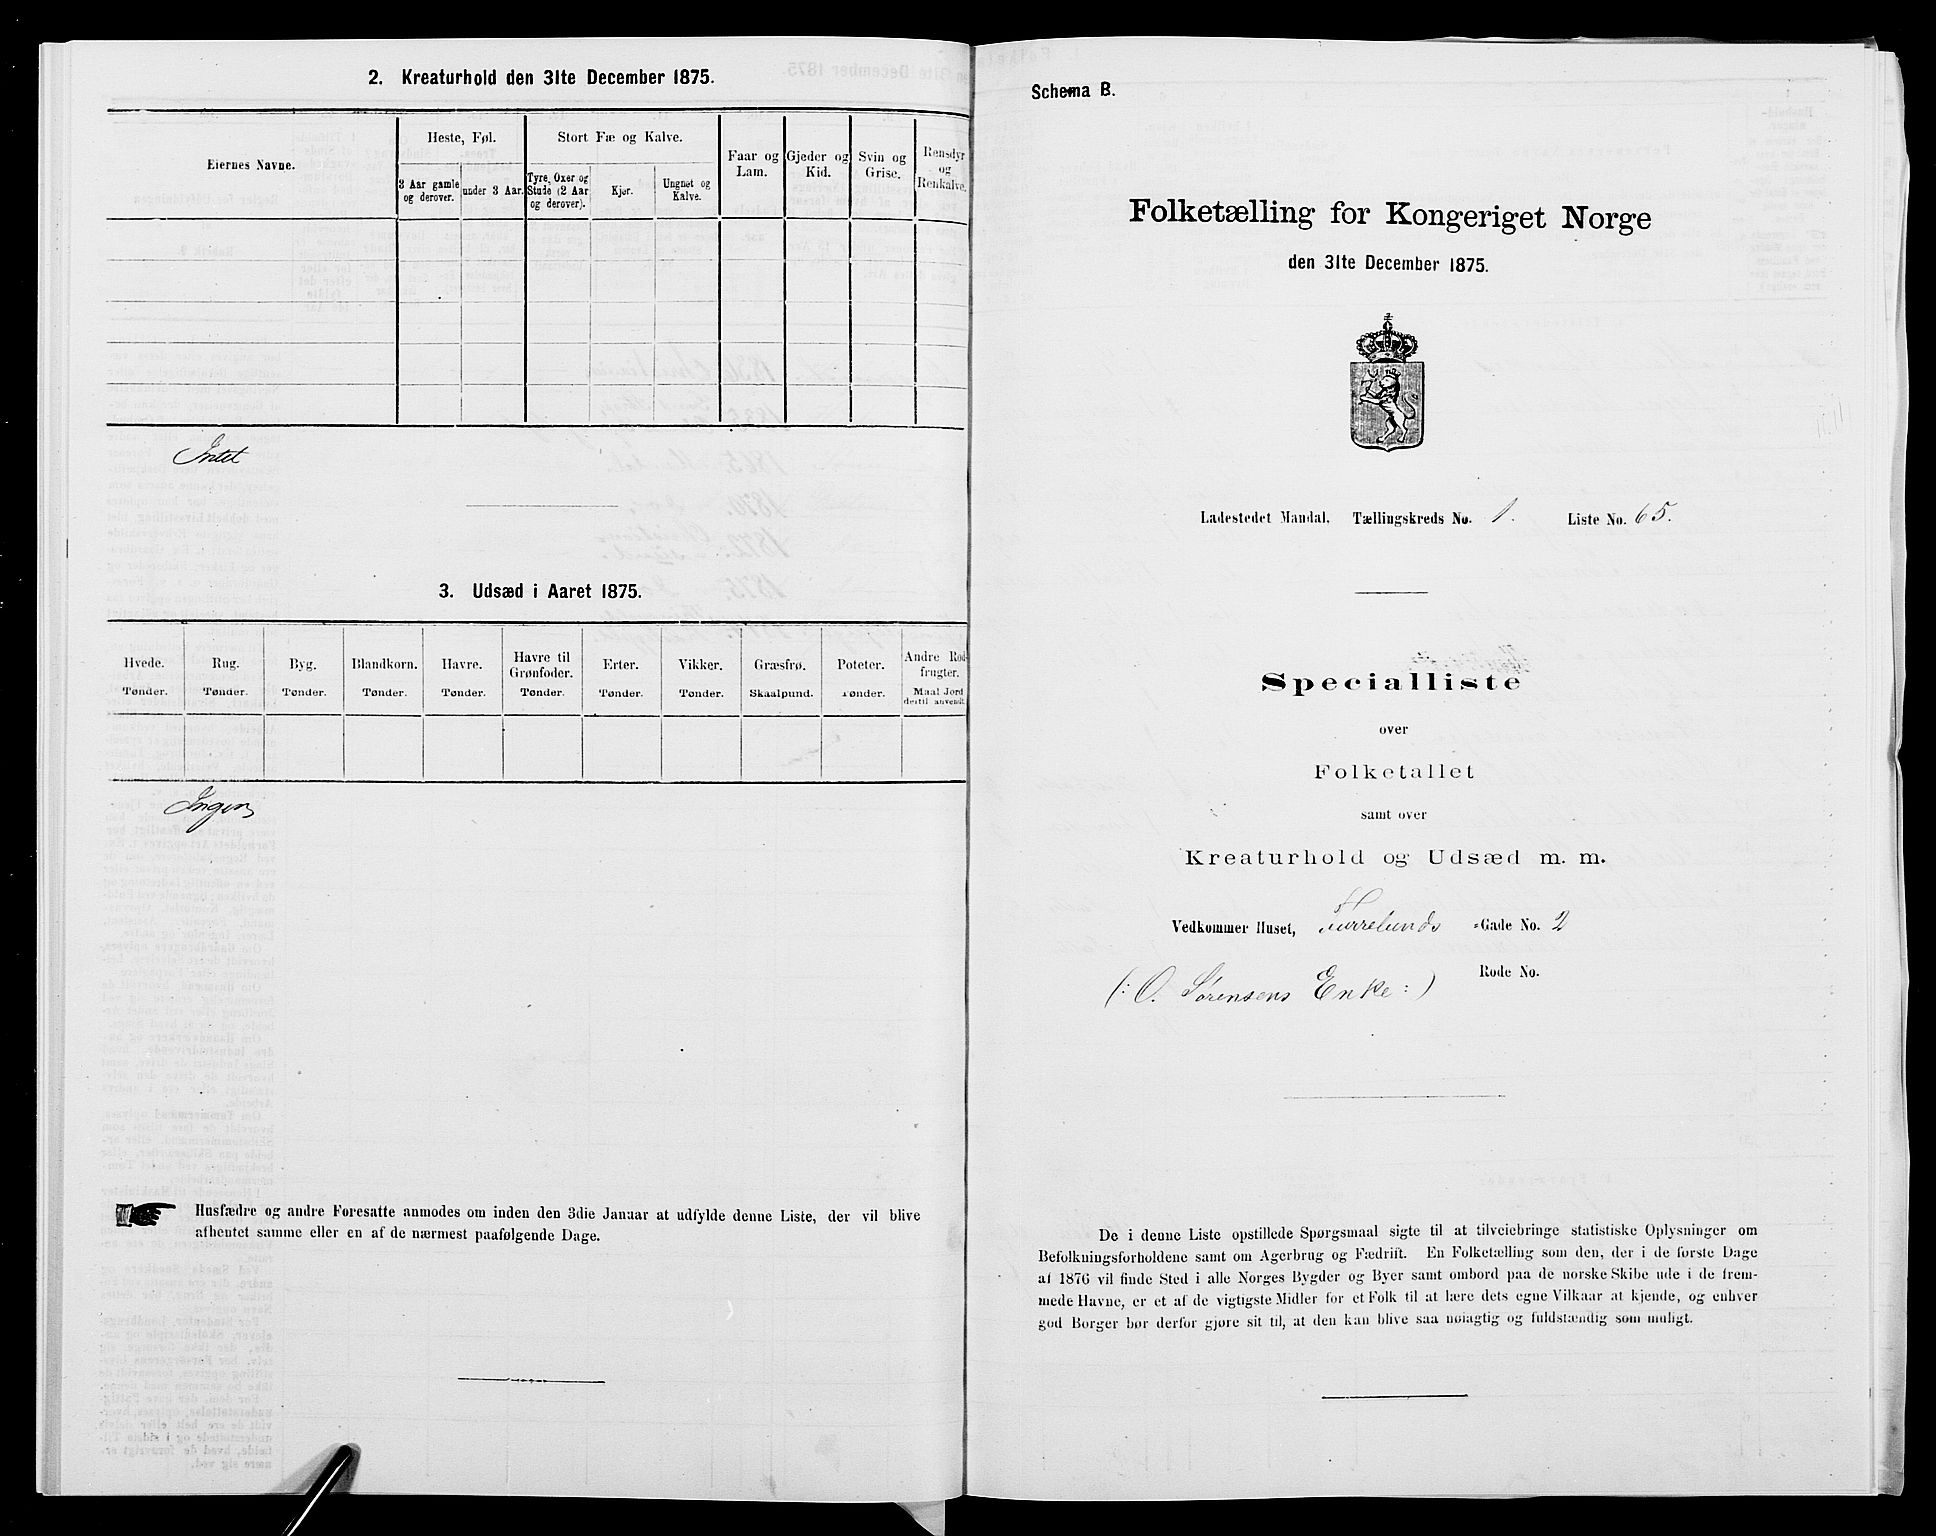 2. Kreaturhold den 31te December 1875.
Eiernes Navne.
Heste, Føl.
Stort Fæ og Kalve.
Faar og Lam.
Gjeder og Kid.
Svin og Grise.
Rensdyr og Renkalve.
3 Aar gamle og derover.
under 3 Aar.
Tyre, Oxer og Stude (2 Aar og derover).
Kjør.
Ungnøt og Kalve.
Intet
3. Udsæd i Aaret 1875.
Hvede. Rug. Byg. Blandkorn. Havre. Havre til Grønfoder. Erter. Vikker. Græsfrø. Poteter. Andre Rodfrugter.
Tønder. Tønder. Tønder. Tønder. Tønder. Tønder. Tønder. Tønder. Skaalpund. Tønder. Maal Jord dertil anvendt.
Ingen
Husfædre og andre Foresatte anmodes om inden den 3die Januar at udfylde denne Liste, der vil blive
afhentet samme eller en af de nærmest paafølgende Dage.
Schema B.
Folketælling for Kongeriget Norge
den 31te December 1875.
Ladestedet Mandal. Tællingskreds No. 1. Liste No. 65.
Specialliste
over
Folketallet
samt over
Kreaturhold og Udsæd m. m.
Vedkommer Huset, Gade No. 2
Rode No.
(: O. Sørensens Enke :)
De i denne Liste opstillede Spørgsmaal sigte til at tilveiebringe statistiske Oplysninger om
Befolkningsforholdene samt om Agerbrug og Fædrift. En Folketælling som den, der i de første Dage
af 1876 vil finde Sted i alle Norges Bygder og Byer samt ombord paa de norske Skibe ude i de frem-
mede Havne, er et af de vigtigste Midler for et Folk til at lære dets egne Vilkaar at kjende, og enhver
god Borger bør derfor gjøre sit til, at den kan blive saa nøiagtig og fuldstændig som muligt.